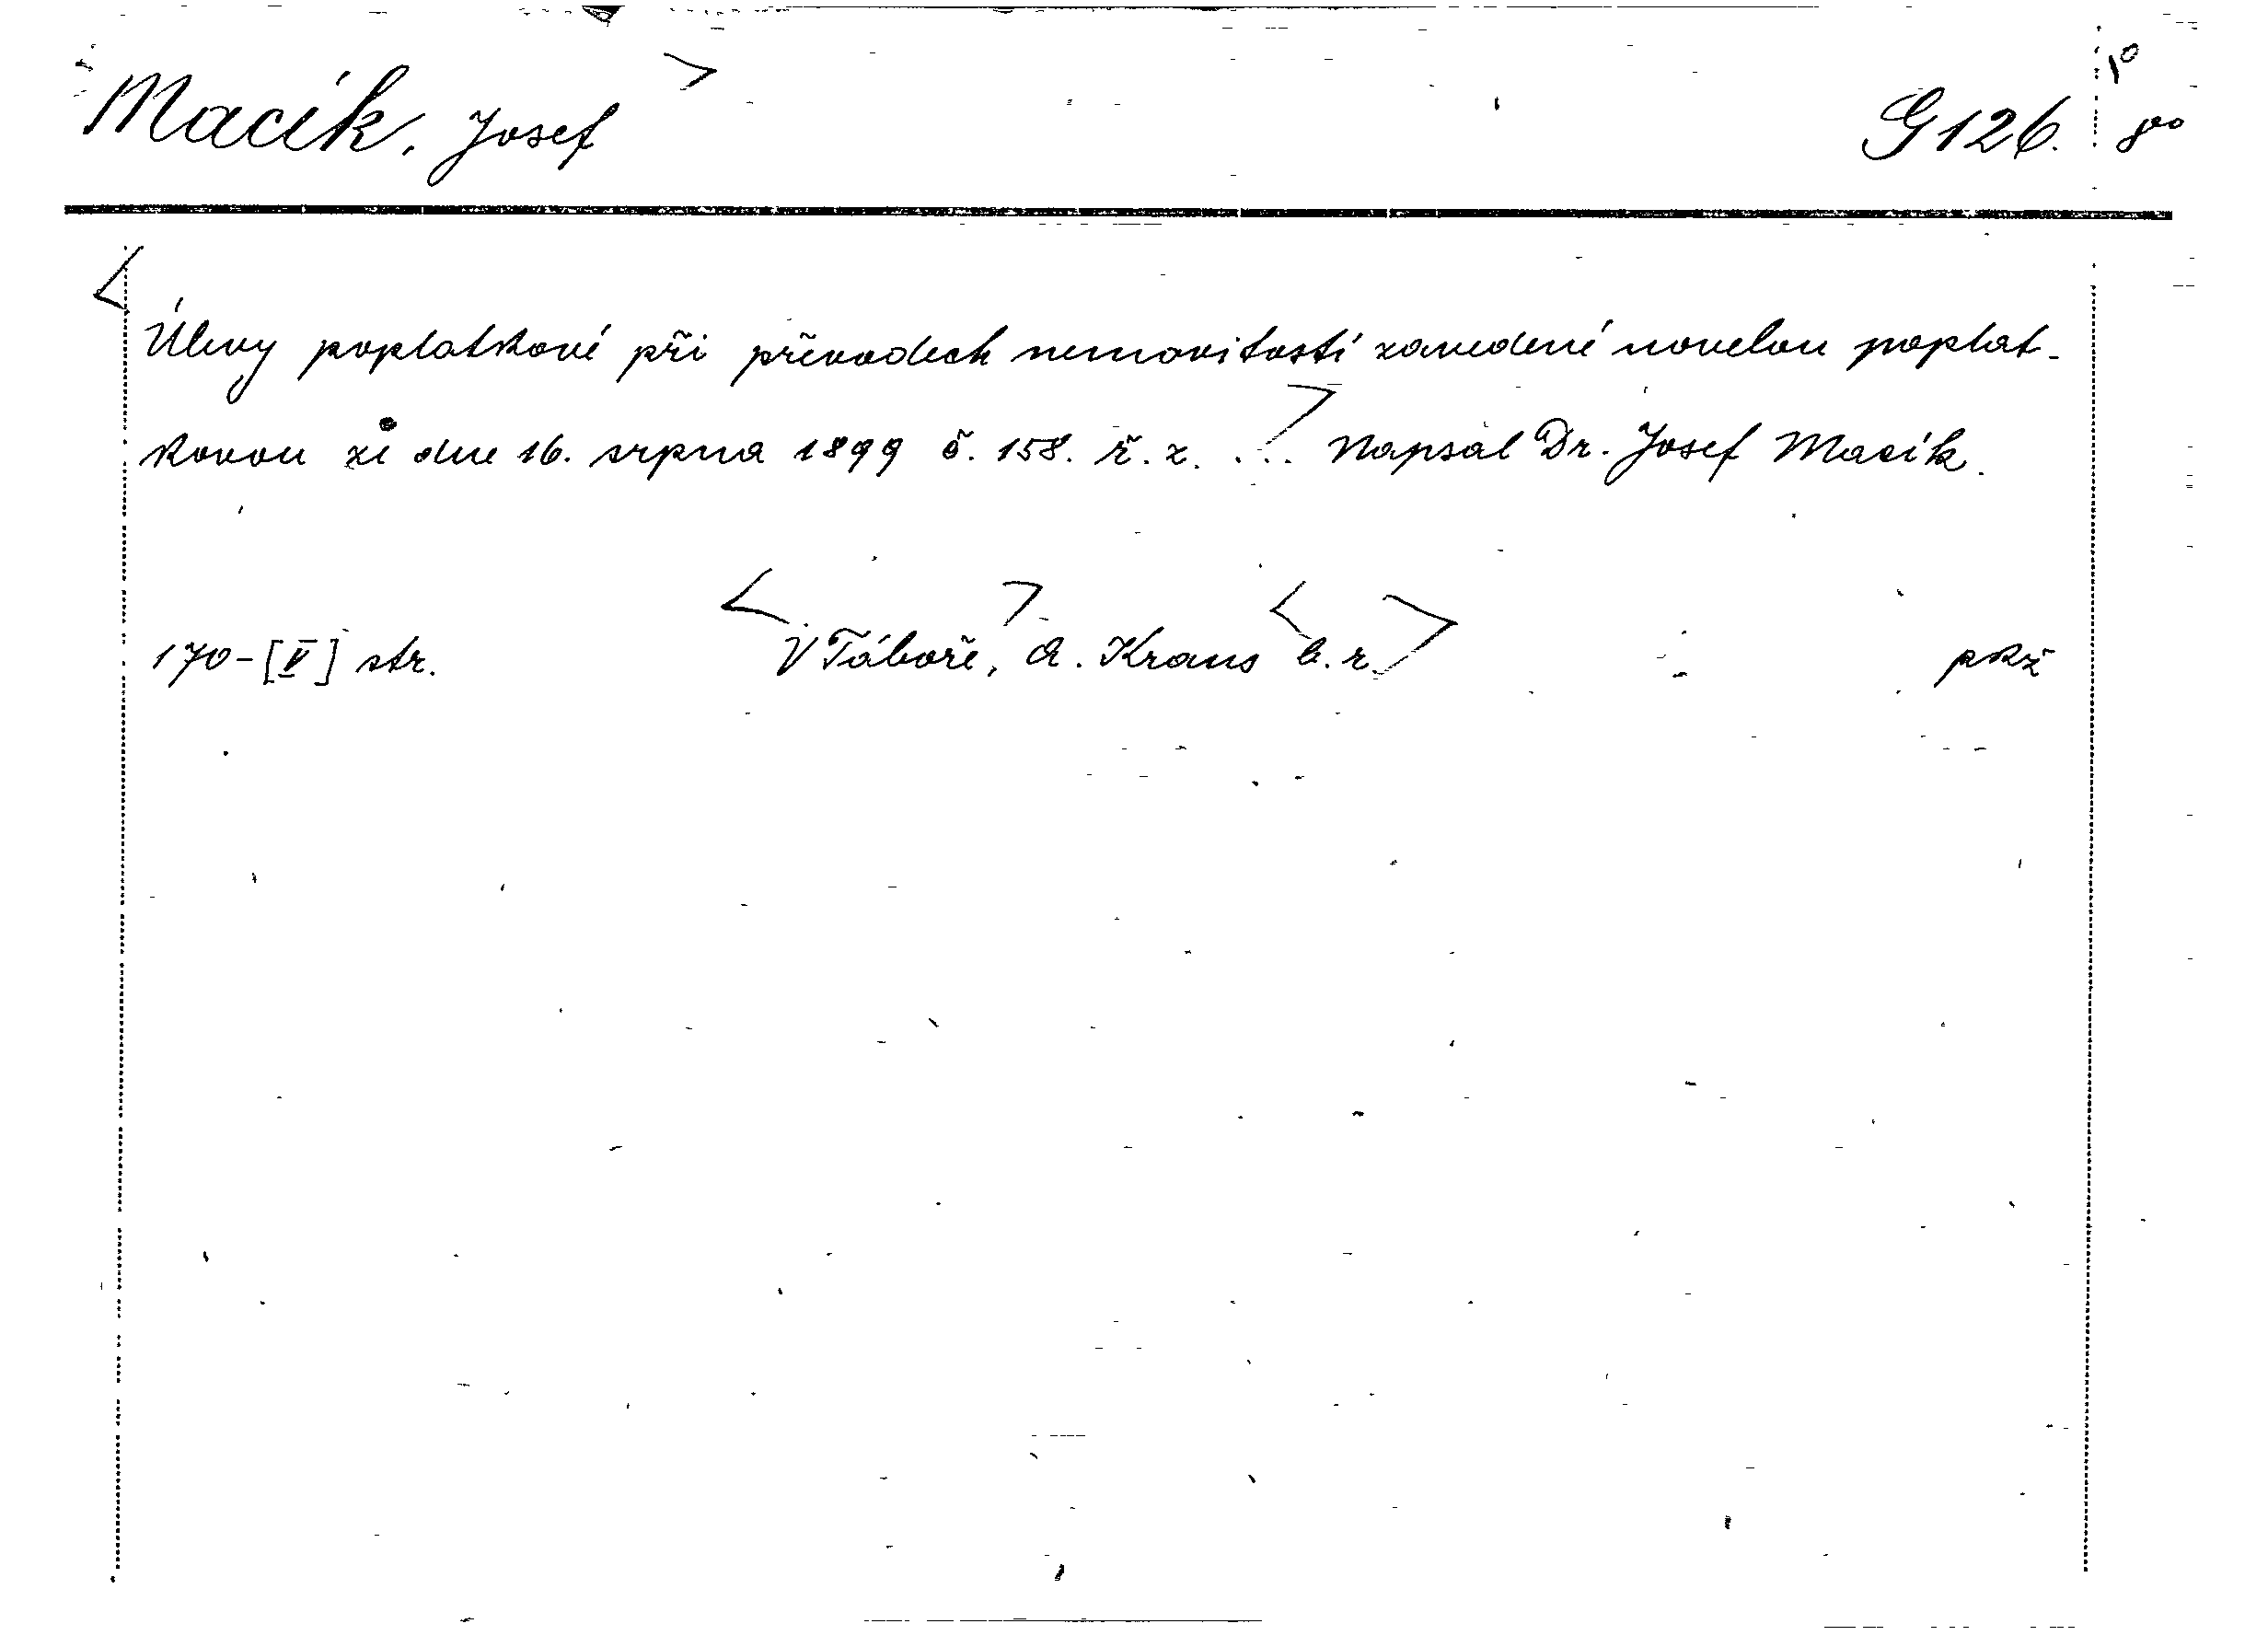 Macík, Josef G126. 1° 8°°
Úlevy poplatkové při převodech nemovitostí zavedené novelou poplat-
kovou ze dne 16. srpna 1899 č. 158. ř. z. ... Napsal Dr. Josef Macík.
170-[V] str. V Táboře, A. Kraus b. r. pkž